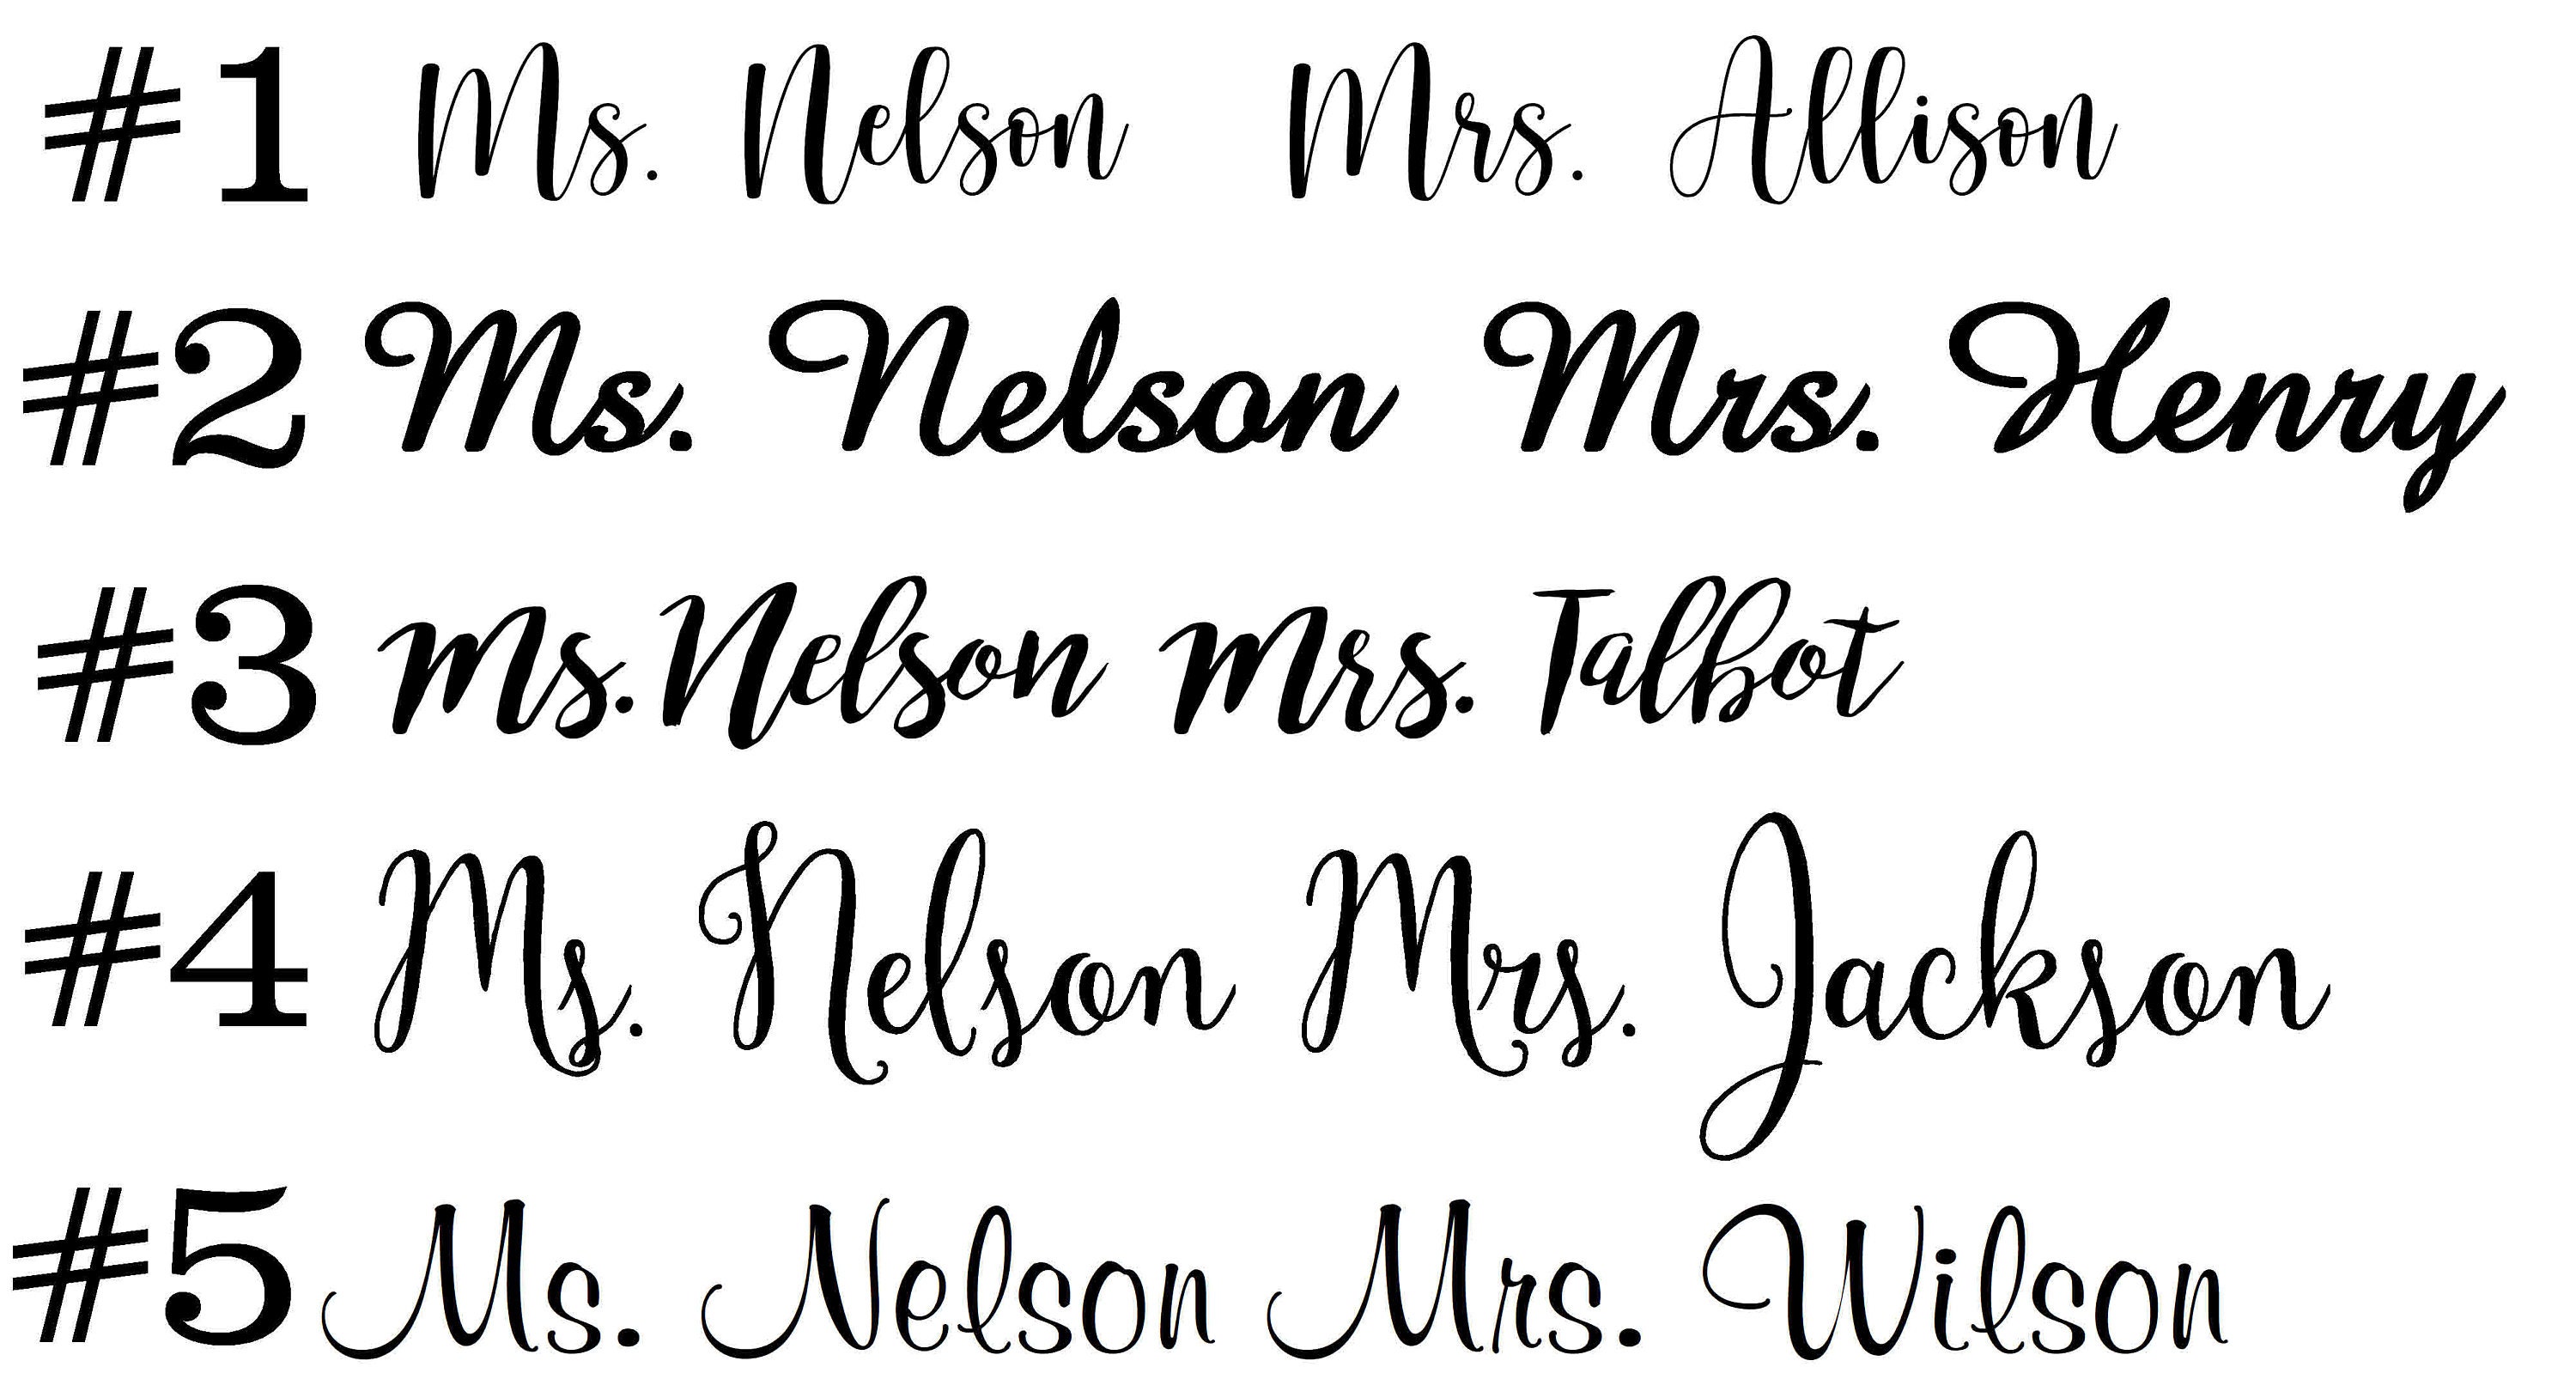 #1 Ms. Nelson Mrs. Allison
#2 Ms. Nelson Mrs. Henry
#3 Ms. Nelson Mrs. Talbot
#4 Ms. Nelson Mrs. Jackson
#5 Ms. Nelson Mrs. Wilson